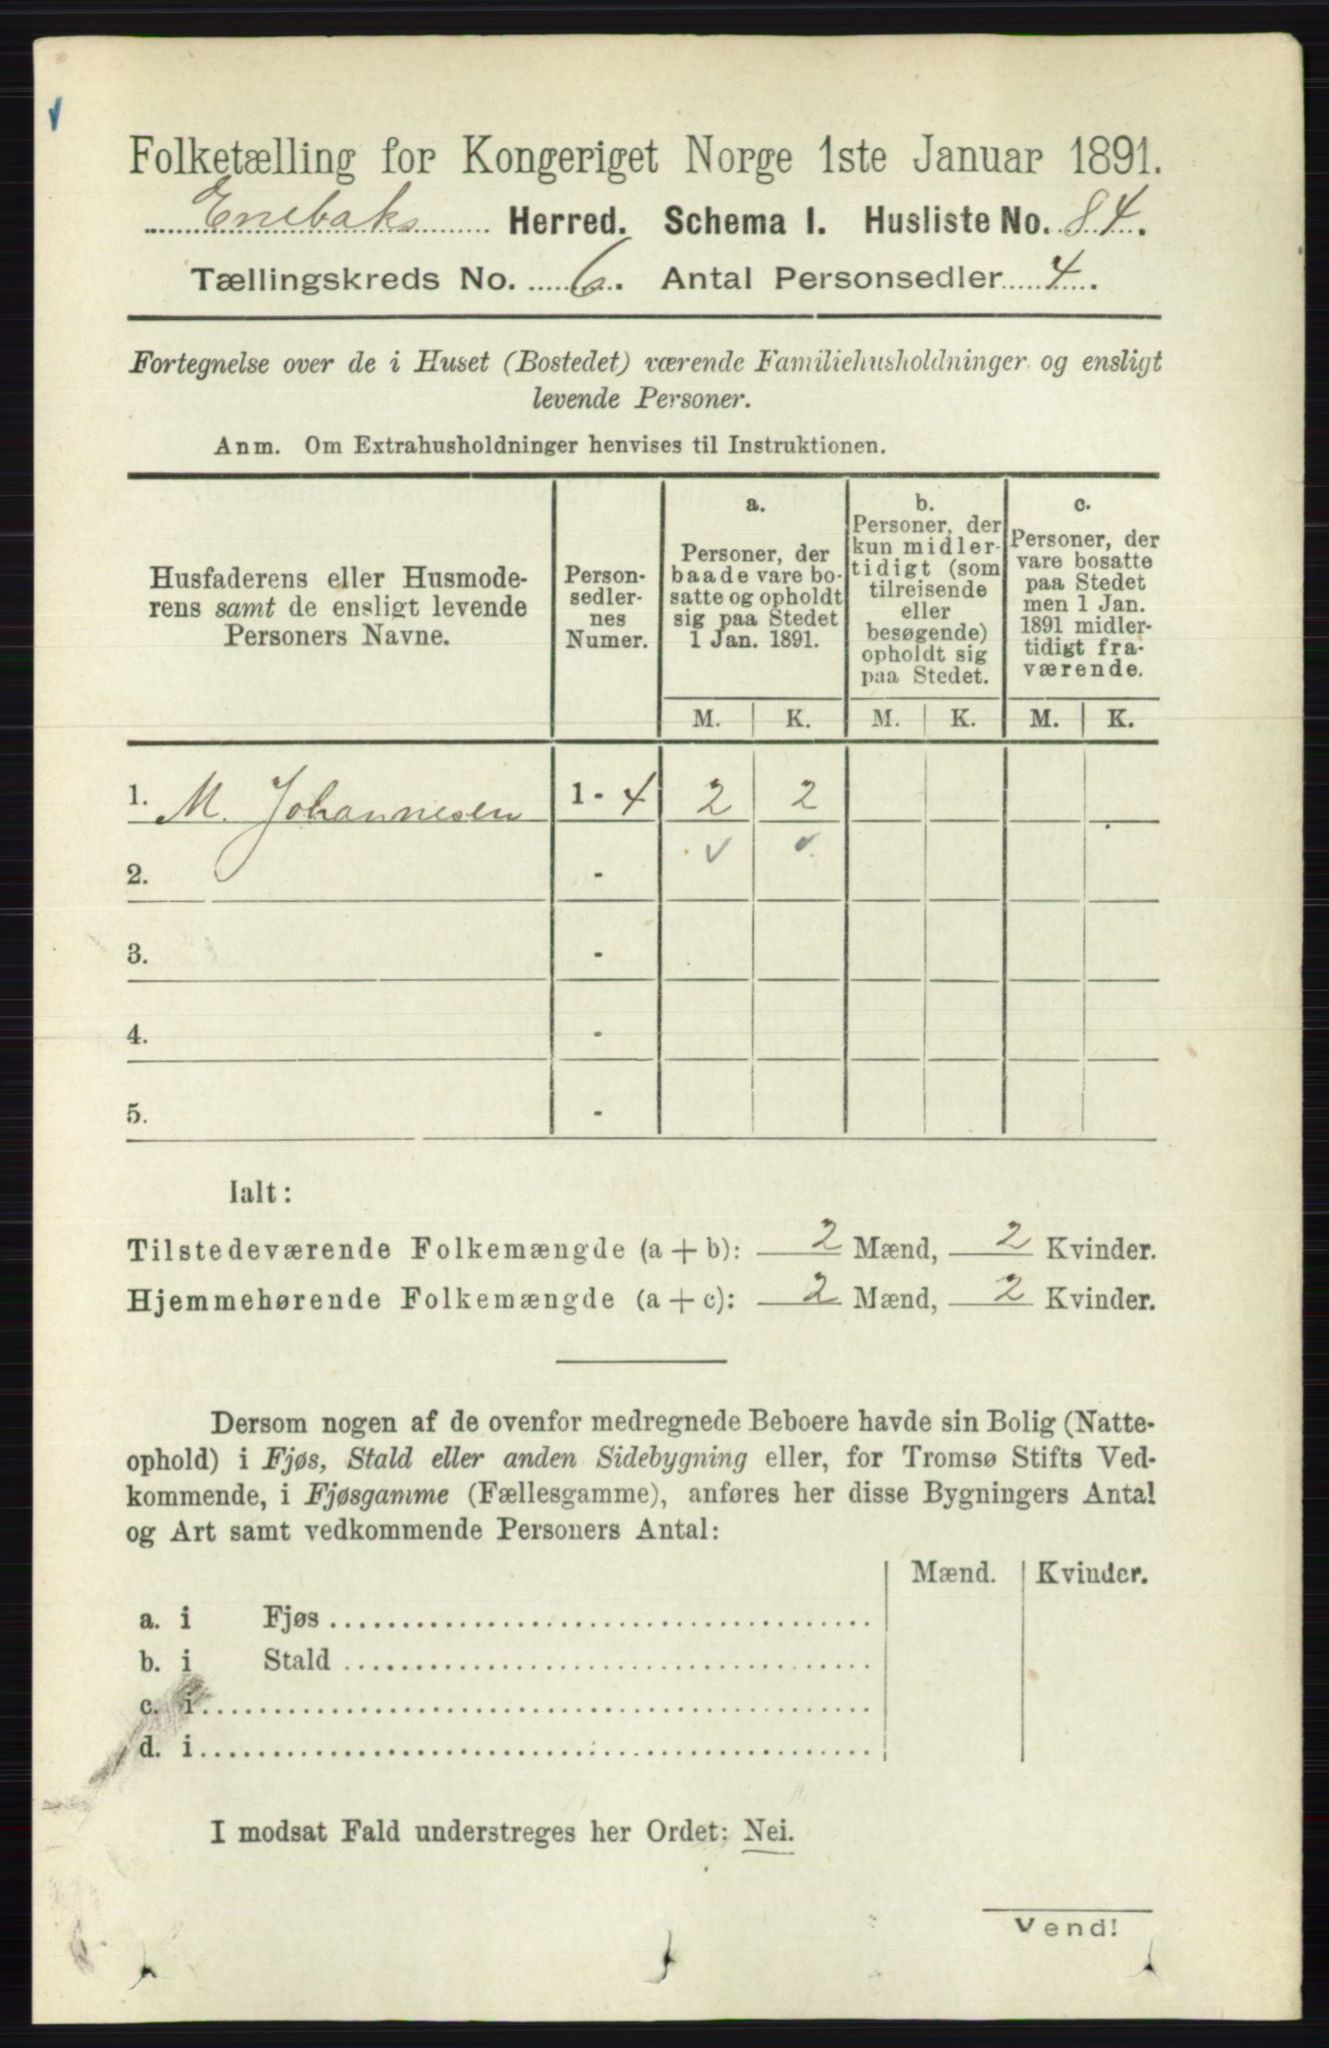 Folketælling for Kongeriget Norge 1ste Januar 1891.
Enebaks Herred. Schema I. Husliste No. 84.
Tællingskreds No. 6. Antal Personsedler 4.
Fortegnelse over de i Huset (Bostedet) værende Familiehusholdninger og ensligt
levende Personer.
Anm. Om Extrahusholdninger henvises til Instruktionen.
Husfaderens eller Husmode-
rens samt de ensligt levende
Personers Navne.
Person-
sedler-
nes
Numer.
a.
Personer, der
baade vare bo-
satte og opholdt
sig paa Stedet
1 Jan. 1891.
b.
Personer, der
kun midler-
tidigt (som
tilreisende
eller
besøgende)
opholdt sig
paa Stedet.
c.
Personer, der
vare bosatte
paa Stedet
men 1 Jan.
1891 midler-
tidigt fra-
værende.
M. K. M. K. M. K.
1. M. Johannesen 1 - 4 2 2
2. -
3. -
4. -
5. -
Ialt:
Tilstedeværende Folkemængde (a + b): 2 Mænd, 2 Kvinder.
Hjemmehørende Folkemængde (a + c): 2 Mænd, 2 Kvinder.
Dersom nogen af de ovenfor medregnede Beboere havde sin Bolig (Natte-
ophold) i Fjøs, Stald eller anden Sidebygning eller, for Tromsø Stifts Ved-
kommende, i Fjøsgamme (Fællesgamme), anføres her disse Bygningers Antal
og Art samt vedkommende Personers Antal:
Mænd. Kvinder.
a. i Fjøs
b. i Stald
c. i
d. i
I modsat Fald understreges her Ordet: Nei.
Vend!